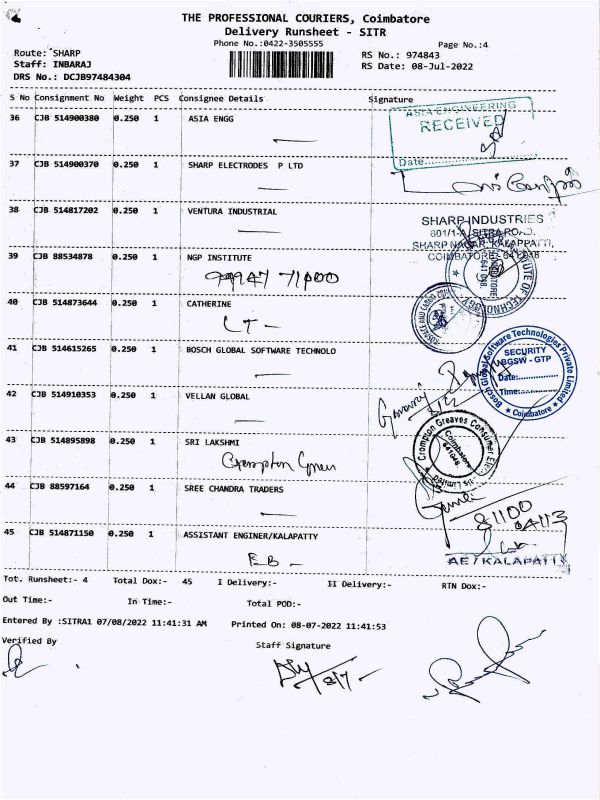 THE PROFESSIONAL COURIERS, Coimbatore
Delivery Runsheet - SITR
Phone No.:0422-3505555
Page No.:4
Route: SHARP
RS No.: 974843
Staff: INBARAJ
RS Date: 08-Jul-2022
DRS No.: DCJB97484304
S No Consignment No Weight PCS Consignee Details Signature
36 CJB 514900380 0.250 1 ASIA ENGG
ASIA ENGINEERING
RECEIVED
Date
37 CJB 514900370 0.250 1 SHARP ELECTRODES P LTD
38 CJB 514817202 0.250 1 VENTURA INDUSTRIAL
SHARP INDUSTRIES
801/1-A, SITRA ROAD,
SHARP NAGAR, KALAPPATTI,
COIMBATORE - 641 048
39 CJB 88534878 0.250 1 NGP INSTITUTE
99947 71000
INSTITUTE OF TECHNOLOGY
COIMBATORE
641 048
40 CJB 514873644 0.250 1 CATHERINE
LT -
41 CJB 514615265 0.250 1 BOSCH GLOBAL SOFTWARE TECHNOLO
Bosch Global Software Technologies Private Limited
SECURITY
BGSW - GTP
Date:
Time:
Coimbatore
42 CJB 514910353 0.250 1 VELLAN GLOBAL
43 CJB 514895898 0.250 1 SRI LAKSHMI
Crompton Greaves
Crompton Greaves Consumer
Limited
Coimbatore
641048
44 CJB 88597164 0.250 1 SREE CHANDRA TRADERS
81100
04113
45 CJB 514871150 0.250 1 ASSISTANT ENGINER/KALAPATTY
EB -
AE / KALAPATTI
Tot. Runsheet:- 4 Total Dox:- 45 I Delivery:- II Delivery:- RTN Dox:-
Out Time:- In Time:- Total POD:-
Entered By :SITRA1 07/08/2022 11:41:31 AM Printed On: 08-07-2022 11:41:53
Verified By Staff Signature
8/7